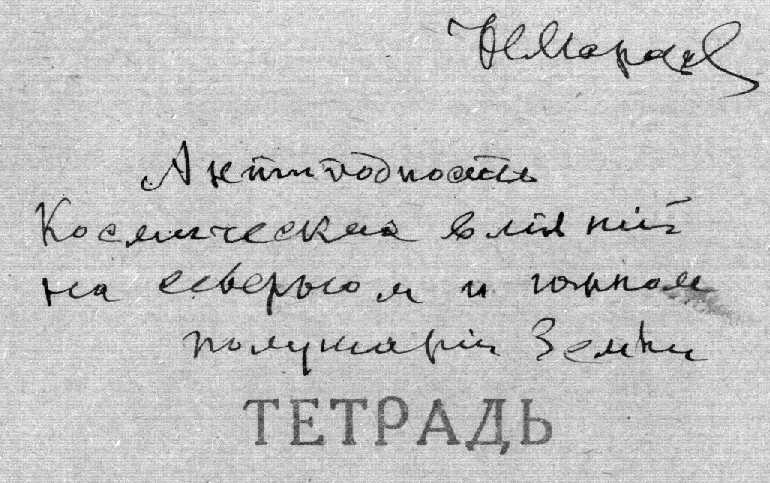 Антиподность
Космическия влiянiй
на северном и южном
полушарiи Земли
ТЕТРАДЬ